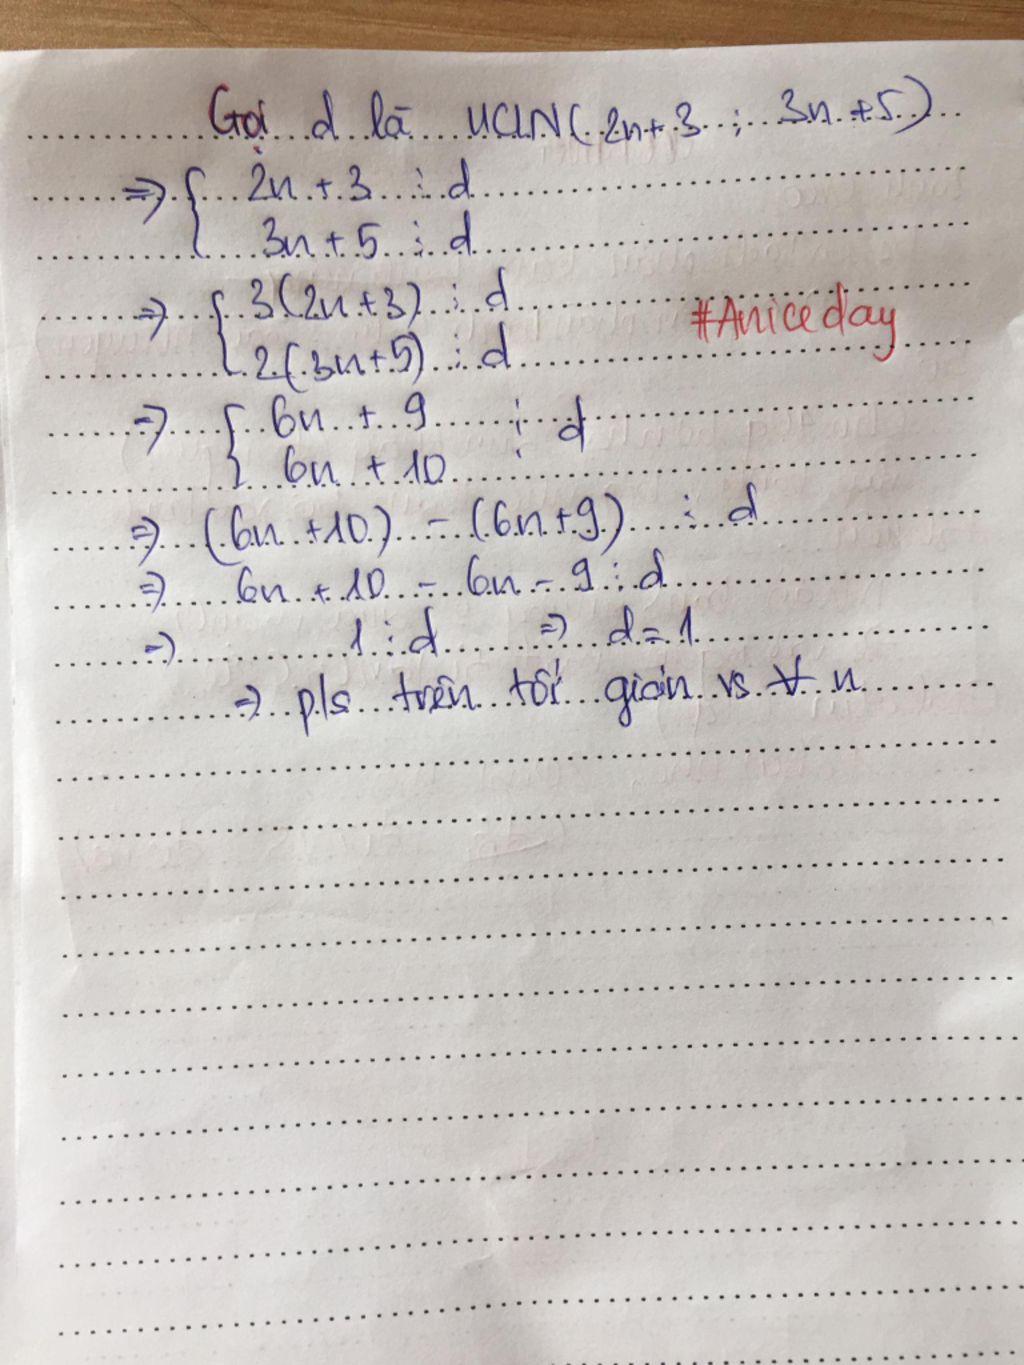 Gọi d là ƯCLN(2n+3; 3n+5)
=> { 2n + 3 ⋮ d
3n + 5 ⋮ d
=> { 3(2n+3) ⋮ d
2(3n+5) ⋮ d
#Aniceday
=> { 6n + 9 ⋮ d
6n + 10
=> (6n +10) - (6n+9) ⋮ d
=> 6n + 10 - 6n - 9 ⋮ d
=> 1 ⋮ d => d = 1
=> p/s trên tối giản vs ∀ n